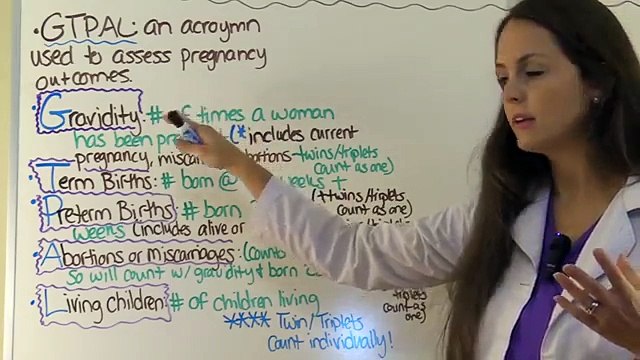 • GTPAL: an acroymn
used to assess pregnancy
outcomes.
• Gravidity: # of times a woman
has been (* includes current
pregnancy, -twins/triplets
count as one)
• Term Births: # born @ weeks +
(++twins/triplets
count as one)
• Preterm Births: # born
weeks (includes alive or
• Abortions or miscarriages: (counts
so will count w/ gravidity & born
triplets
count as
one)
• Living children # of children living
**** Twin/Triplets
count individually!